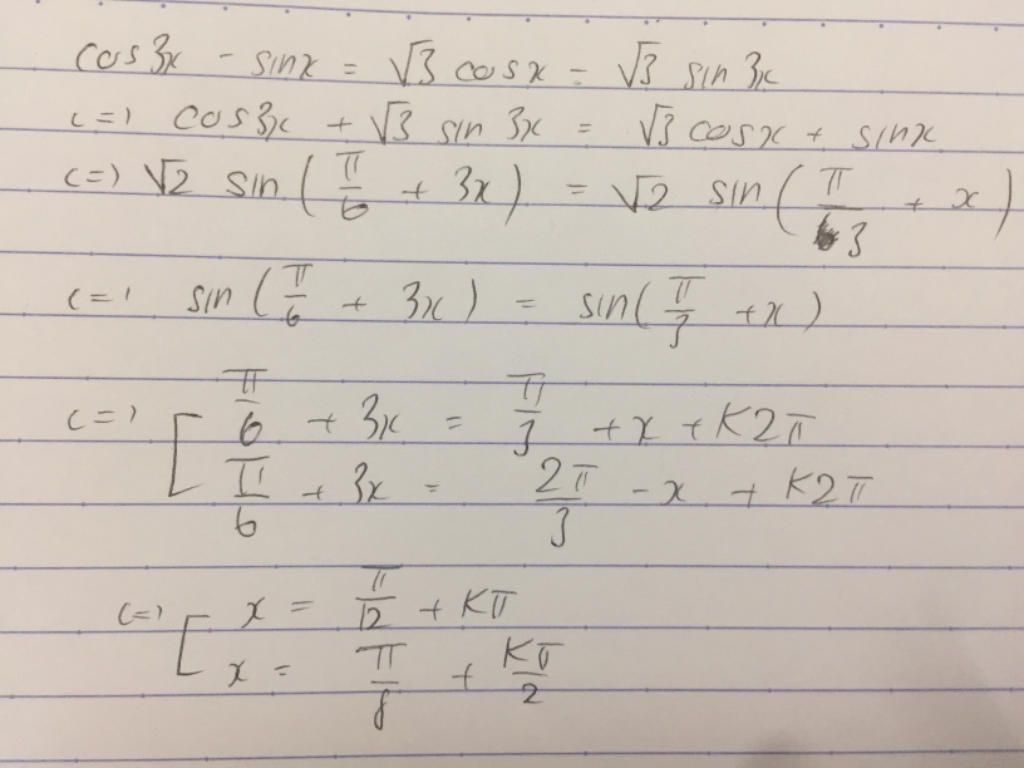 cos3x - sinx = √3 cosx - √3 sin 3x
<=> cos3x + √3 sin 3x = √3 cosx + sinx
<=> √2 sin(π/6 + 3x) = √2 sin(π/3 + x)
<=> sin(π/6 + 3x) = sin(π/3 + x)
<=> [ π/6 + 3x = π/3 + x + K2π
π/6 + 3x = 2π/3 - x + K2π
<=> [ x = π/12 + Kπ
x = π/8 + Kπ/2